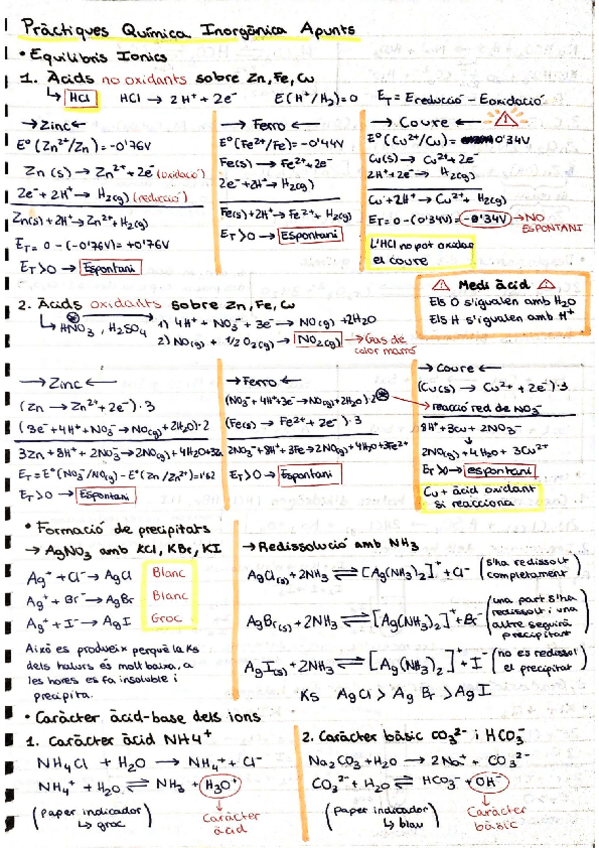 Pràctiques Química Inorgànica Apunts
• Equilibris Iònics
1. Àcids no oxidants sobre Zn, Fe, Cu
↳ HCl HCl → 2H⁺ + 2e⁻ E(H⁺/H₂)=0 ET = Ereducció - Eoxidació
→ Zinc ←
E°(Zn²⁺/Zn) = -0'76V
Zn(s) → Zn²⁺ + 2e⁻ (oxidació)
2e⁻ + 2H⁺ → H₂(g) (reducció)
Zn(s) + 2H⁺ → Zn²⁺ + H₂(g)
ET = 0 - (-0'76V) = +0'76V
ET > 0 → Espontani
→ Ferro ←
E°(Fe²⁺/Fe) = -0'44V
Fe(s) → Fe²⁺ + 2e⁻
2e⁻ + 2H⁺ → H₂(g)
Fe(s) + 2H⁺ → Fe²⁺ + H₂(g)
ET > 0 → Espontani
→ Coure ←
E°(Cu²⁺/Cu) = 0'34V
Cu(s) → Cu²⁺ + 2e⁻
2H⁺ + 2e⁻ → H₂(g)
Cu + 2H⁺ → Cu²⁺ + H₂(g)
ET = 0 - (0'34V) = -0'34V → NO
ESPONTANI
L'HCl no pot oxidar
el coure
⚠ Medi àcid ⚠
Els O s'igualen amb H₂O
Els H s'igualen amb H⁺
2. Àcids oxidants sobre Zn, Fe, Cu
↳ HNO₃, H₂SO₄ 1) 4H⁺ + NO₃⁻ + 3e⁻ → NO(g) + 2H₂O
2) NO(g) + 1/2 O₂(g) → NO₂(g) → Gas de
color marró
→ Zinc ←
(Zn → Zn²⁺ + 2e⁻)·3
(3e⁻ + 4H⁺ + NO₃⁻ → NO(g) + 2H₂O)·2
3Zn + 8H⁺ + 2NO₃⁻ → 2NO(g) + 4H₂O + 3Zn
ET = E°(NO₃⁻/NO(g)) - E°(Zn/Zn²⁺) = 1'62
ET > 0 → Espontani
→ Ferro ←
(NO₃⁻ + 4H⁺ + 3e⁻ → NO(g) + 2H₂O)·2
(Fe(s) → Fe²⁺ + 2e⁻)·3
2NO₃⁻ + 8H⁺ + 3Fe → 2NO(g) + 4H₂O + 3Fe²⁺
ET > 0 → Espontani
→ Coure ←
(Cu(s) → Cu²⁺ + 2e⁻)·3
reacció red de NO₃⁻
8H⁺ + 3Cu + 2NO₃⁻
↓
2NO(g) + 4H₂O + 3Cu²⁺
ET > 0 → espontani
Cu + àcid oxidant
si reacciona
• Formació de precipitats
→ AgNO₃ amb KCl, KBr, KI
Ag⁺ + Cl⁻ → AgCl Blanc
Ag⁺ + Br⁻ → AgBr Blanc
Ag⁺ + I⁻ → AgI Groc
Això es produeix perquè la Ks
dels halurs és molt baixa, a
les hores es fa insoluble i
precipita.
→ Redissolució amb NH₃
AgCl(s) + 2NH₃ ⇌ [Ag(NH₃)₂]⁺ + Cl⁻ (s'ha redissolt
completament)
AgBr(s) + 2NH₃ ⇌ [Ag(NH₃)₂]⁺ + Br⁻ (una part s'ha
redissolt i una
altre seguirà
precipitant)
AgI(s) + 2NH₃ ⇌ [Ag(NH₃)₂]⁺ + I⁻ (no es redissol
el precipitat)
Ks AgCl > AgBr > AgI
• Caràcter àcid-base dels ions
1. Caràcter àcid NH4⁺
NH₄Cl + H₂O → NH₄⁺ + Cl⁻
NH₄⁺ + H₂O ⇌ NH₃ + H₃O⁺
(paper indicador
↳ groc)
Caràcter
àcid
2. Caràcter bàsic CO₃²⁻ i HCO₃⁻
Na₂CO₃ + H₂O → 2Na⁺ + CO₃²⁻
CO₃²⁻ + H₂O ⇌ HCO₃⁻ + OH⁻
(paper indicador
↳ blau)
Caràcter
bàsic